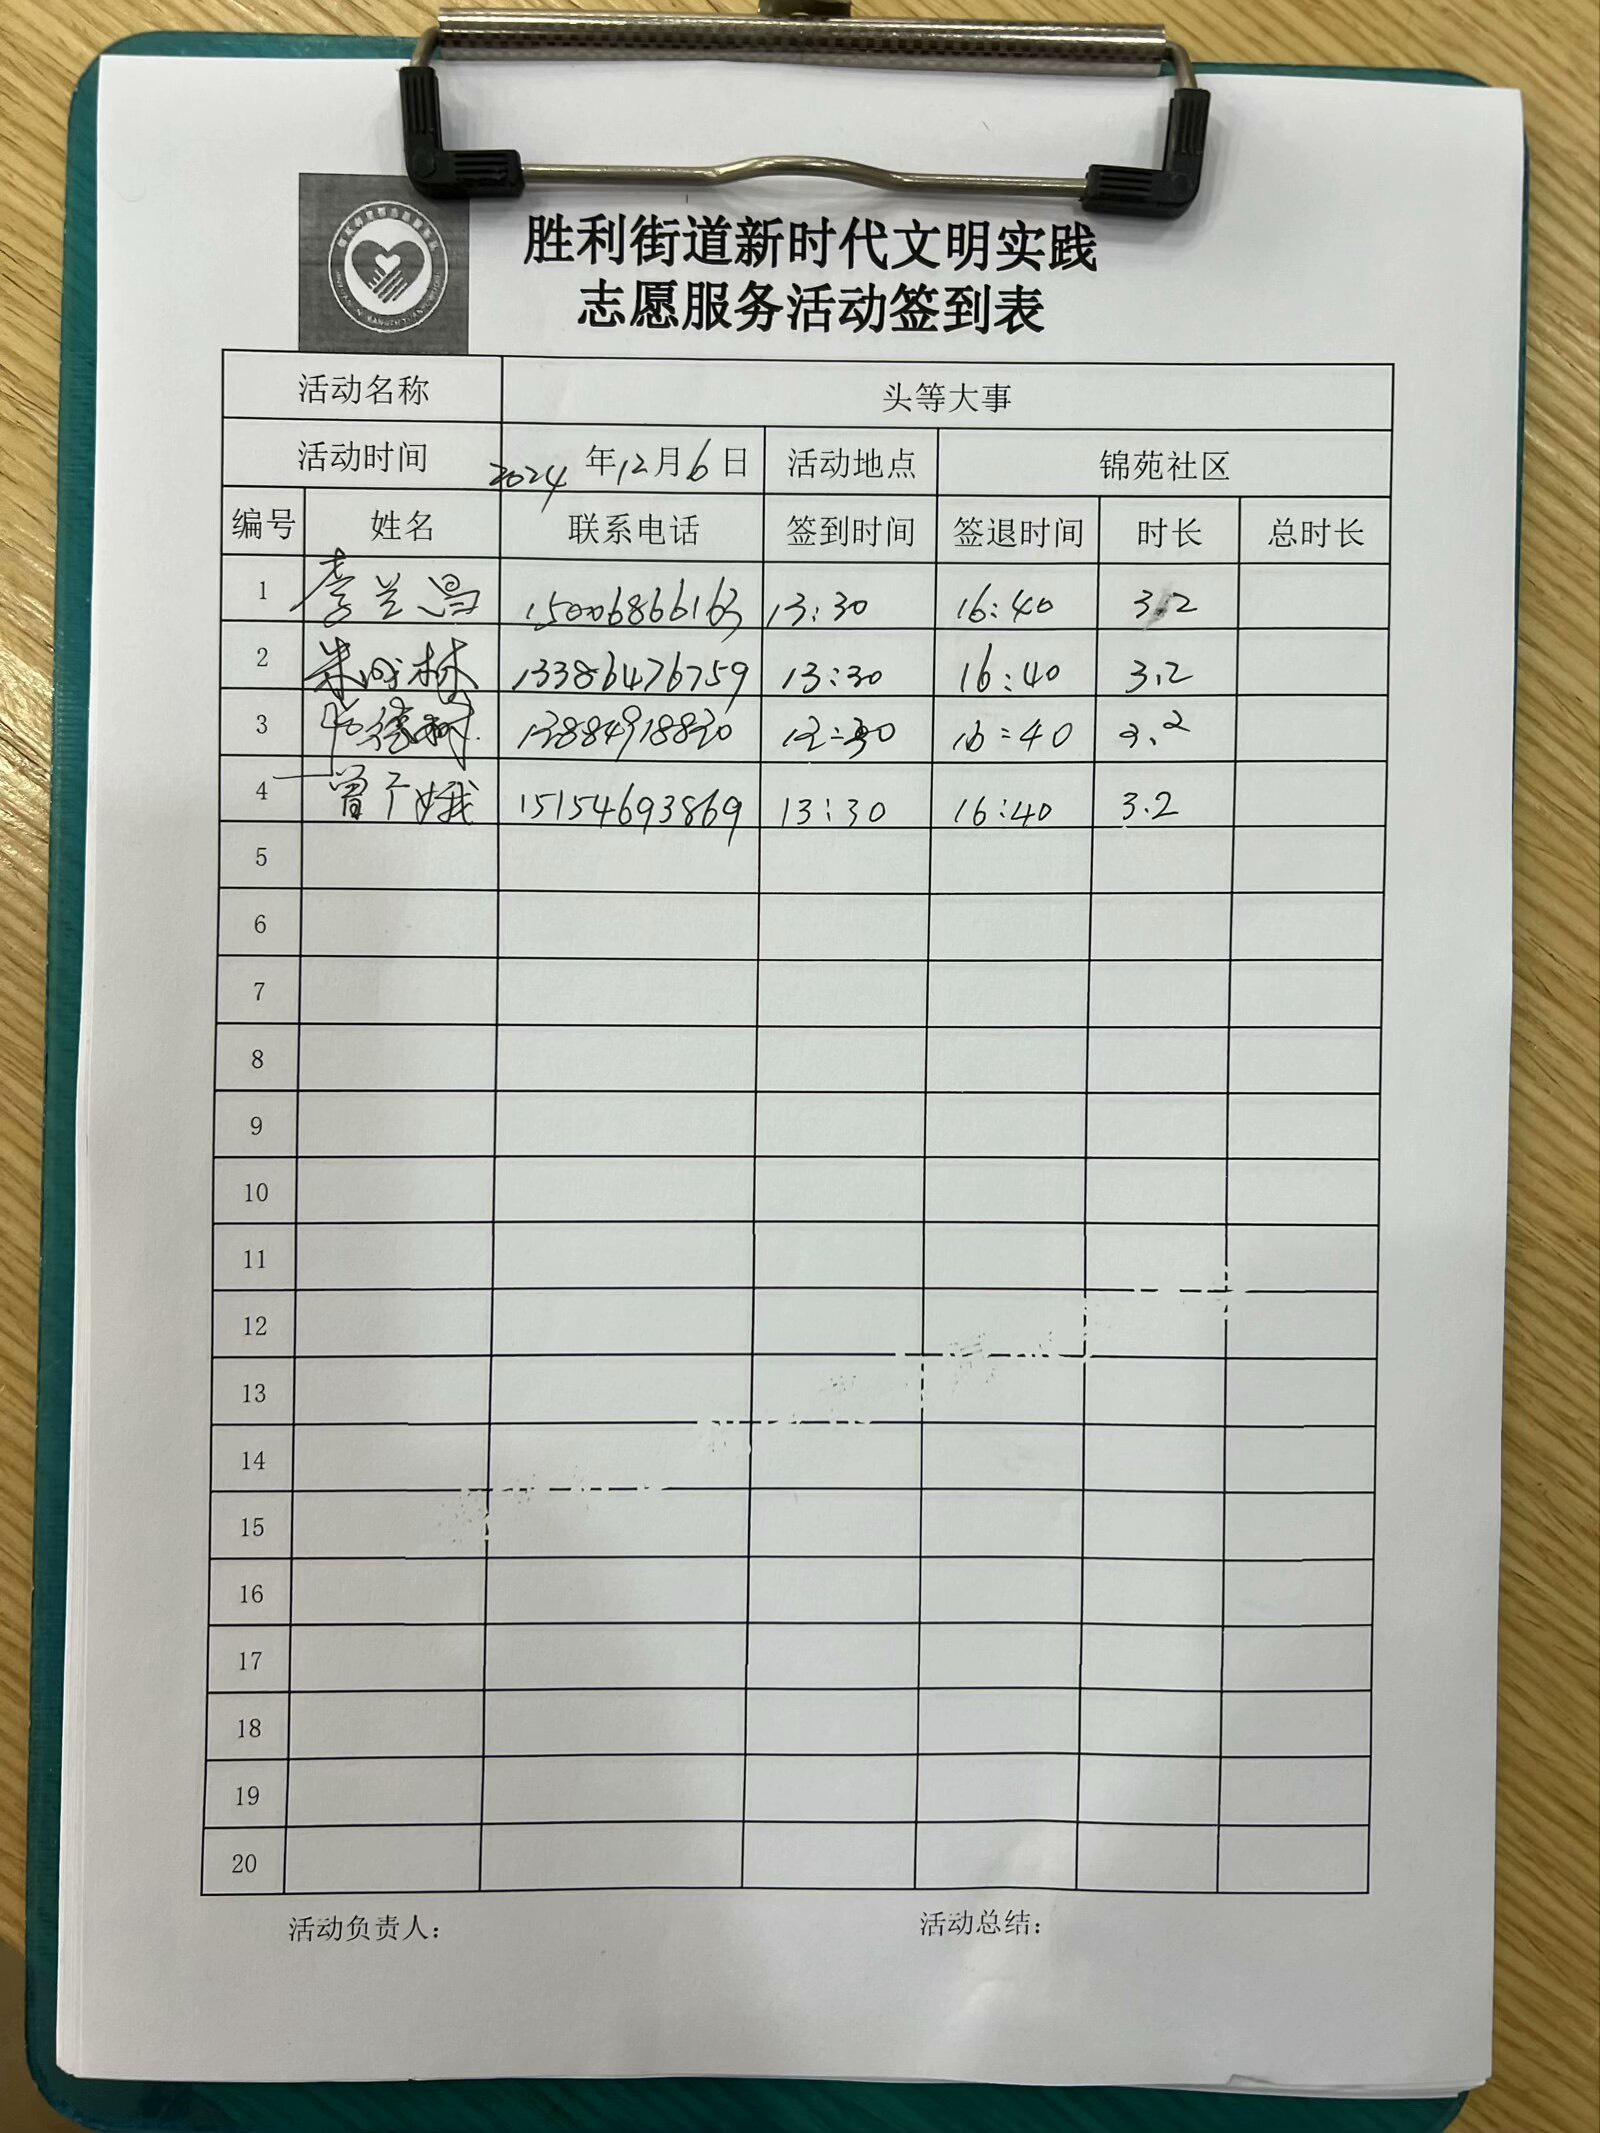 胜利街道新时代文明实践
志愿服务活动签到表
活动名称 头等大事
活动时间 2024年12月6日 活动地点 锦苑社区
编号 姓名 联系电话 签到时间 签退时间 时长 总时长
1 李兰昌 15006866163 13:30 16:40 3.2
2 朱 林 13386476759 13:30 16:40 3.2
3 德树 13884918830 13:30 16:40 3.2
4 曾广娥 15154693869 13:30 16:40 3.2
5
6
7
8
9
10
11
12
13
14
15
16
17
18
19
20
活动负责人： 活动总结：